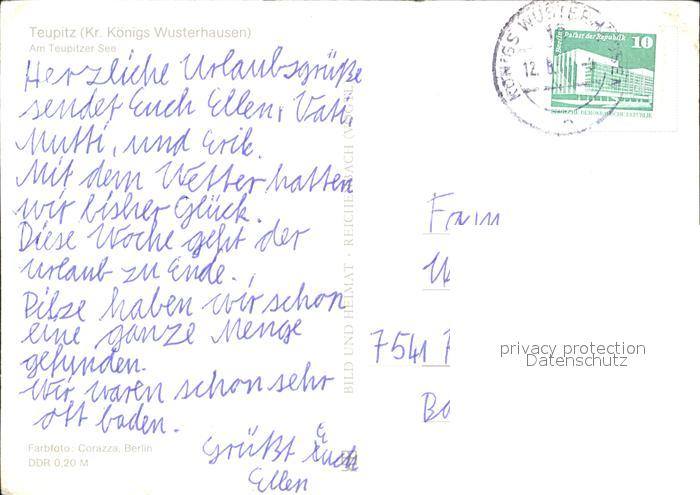 Teupitz (Kr. Königs Wusterhausen)
Am Teupitzer See
Herzliche Urlaubsgrüße
sendet Euch Ellen, Vati,
Mutti, und Erik.
Mit dem Wetter hatten
wir bisher Glück.
Diese Woche geht der
Urlaub zu Ende.
Pilze haben wir schon
eine ganze Menge
gefunden.
Wir waren schon sehr
oft baden.
Grüßt Euch
Ellen
Farbfoto: Corazza, Berlin
DDR 0,20 M
BILD UND HEIMAT · REICHENBACH
KÖNIGS WUSTERHAUSEN
12.
Berlin, Palast der Republik
10
Fam
7541
privacy protection
Datenschutz